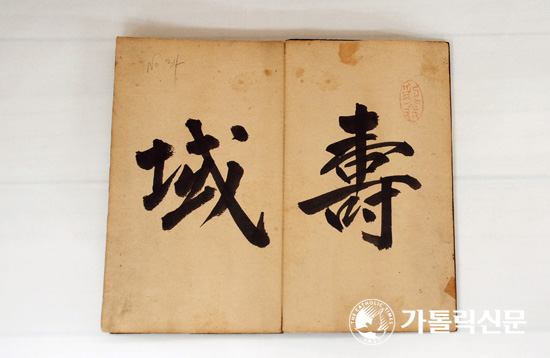 壽域
No. 34
THE CATHOLIC TIMES
가톨릭신문